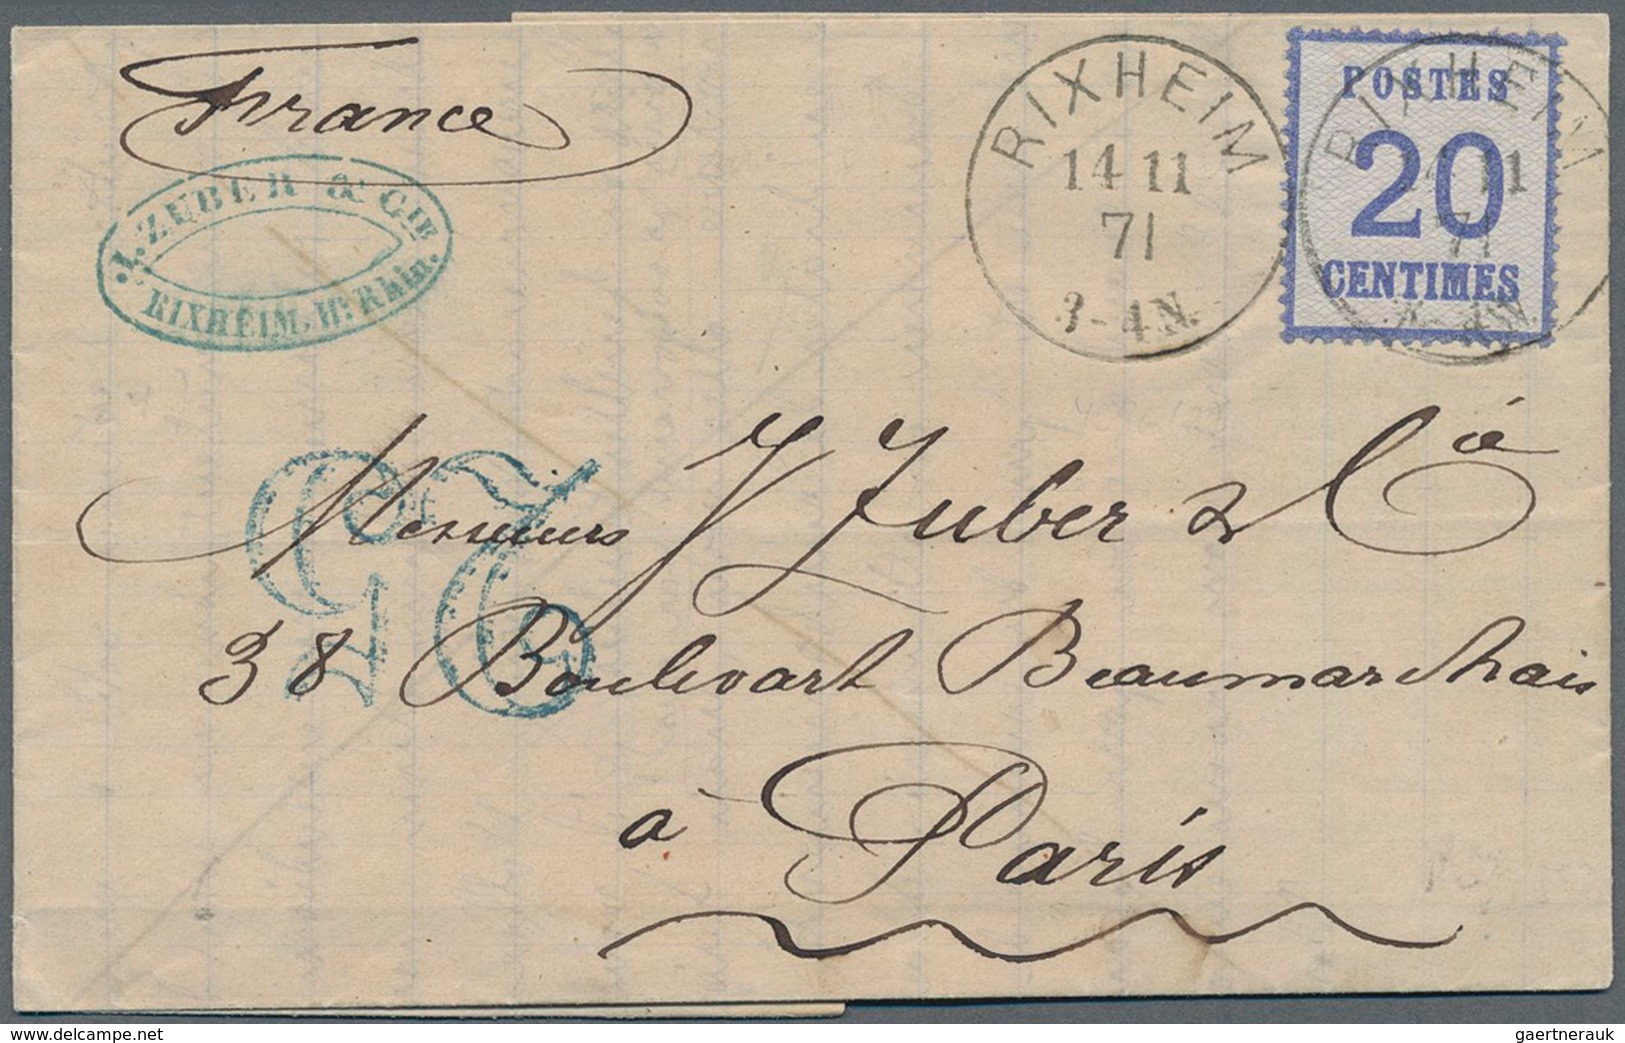 France
J. ZUBER & CIE
RIXHEIM. Ht Rhin.
RIXHEIM
14 11
71
3-4N.
POSTES
20
CENTIMES
RIXHEIM
14 11
71
3-4N.
25
Messieurs J Zuber & Cie
38 Boulevart Beaumarchais
à Paris
gaertnerauk @ delcampe.net